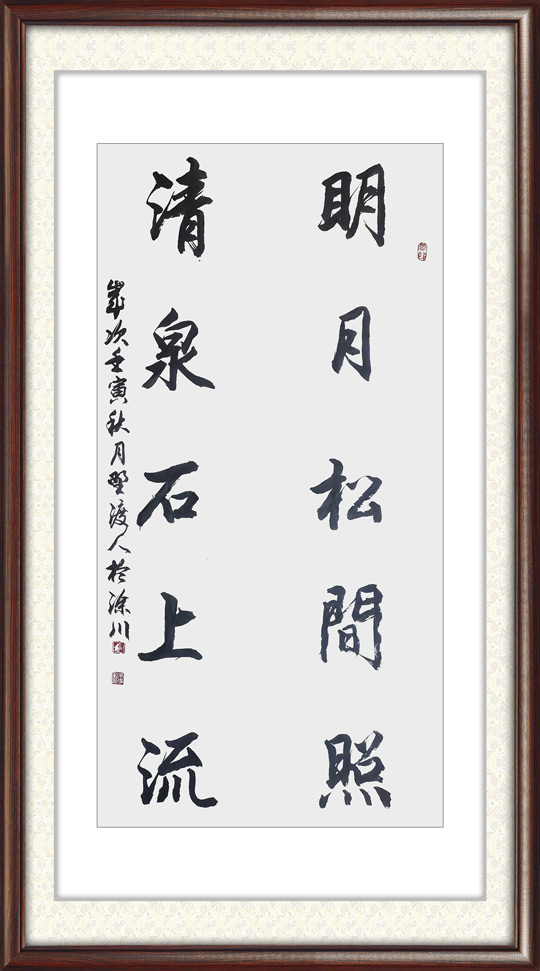 明月松間照
清泉石上流
歲次壬寅秋月野渡人於滁川